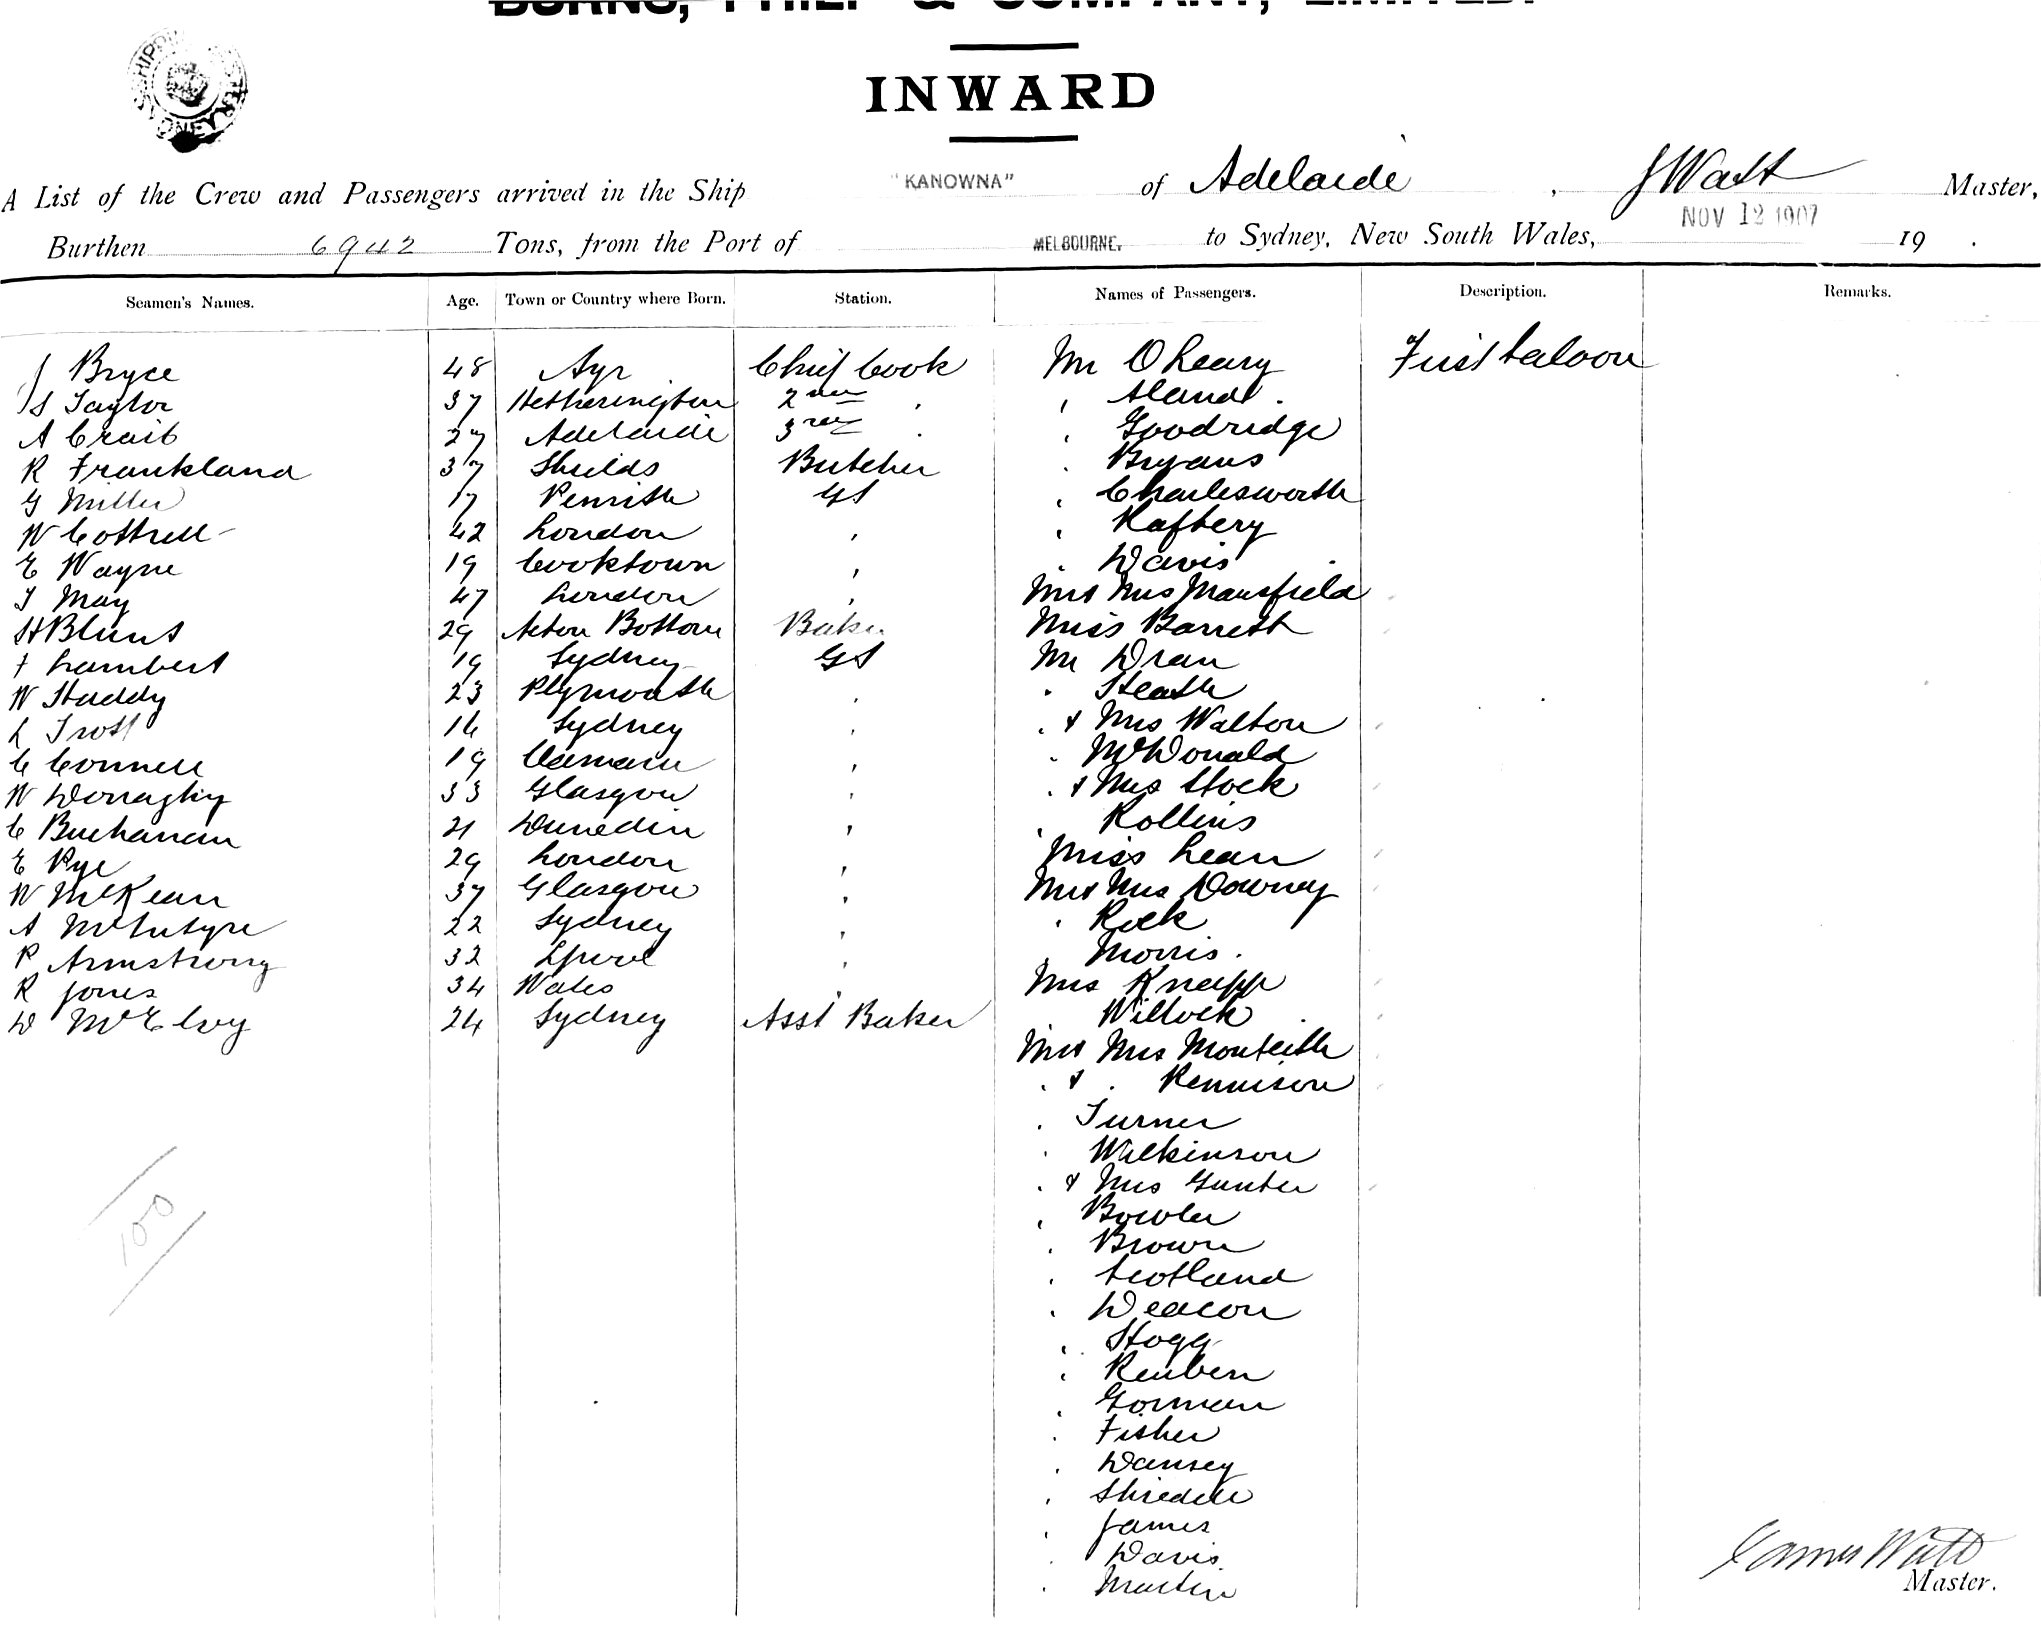 BURNS, PHILP & COMPANY, LIMITED.
INWARD
A List of the Crew and Passengers arrived in the Ship "KANOWNA" of Adelaide, J Watt Master,
Burthen 6942 Tons, from the Port of MELBOURNE. to Sydney, New South Wales, NOV 12 1907 19 .
Seamen's Names. Age. Town or Country where Born. Station. Names of Passengers. Description. Remarks.
J Bryce 48 Ayr Chief Cook Mr O Leary First Saloon
S Taylor 37 Hetherington 2nd "
A Craib 27 Adelaide 3rd " " Goodridge
R Frankland 37 Shields Butcher " Bryans
G Miller 17 Penrith GS " Charlesworth
W Cottrell 42 London " " Raftery
E Wayne 19 Cooktown " " Davis
T May 47 London " Mr & Mrs Mansfield
H Blunt 29 Acton Bottom Baker Miss Barrett
F Lambert 19 Sydney GS Mr Dran
W Huddy 23 Plymouth " " Heath
L Trott 16 Sydney " " & Mrs Walton
C Connell 19 Oamaru " " McDonald
W Donaghy 33 Glasgow " " & Mrs Stock
C Buchanan 21 Dunedin " " Rollins
E Pye 29 London " Miss Lean
W McKean 37 Glasgow " Mr & Mrs Downey
A McIntyre 22 Sydney " " Rock
P Armstrong 32 Lpool " " Morris
R Jones 34 Wales " Mrs Knapp
D McElvoy 24 Sydney Asst Baker " Willock
Mr & Mrs Monteith
" & " Rennison
" Turner
" Wilkinson
" & Mrs Gunter
" Bowler
" Brown
" Scotland
" Deacon
" Hogg
" Reuben
" Gorman
" Fisher
" Dansey
" James
" Davis
" Martin
100
James Watt
Master.